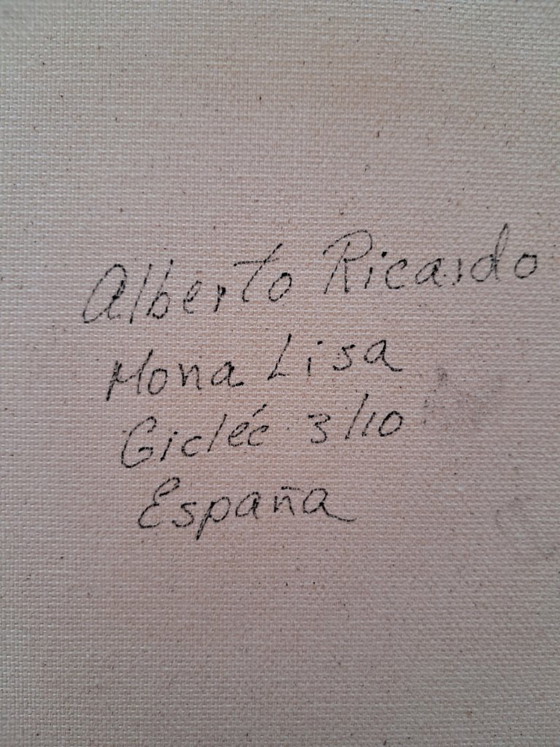 Alberto Ricardo
Mona Lisa
Gicléc 3/10
España